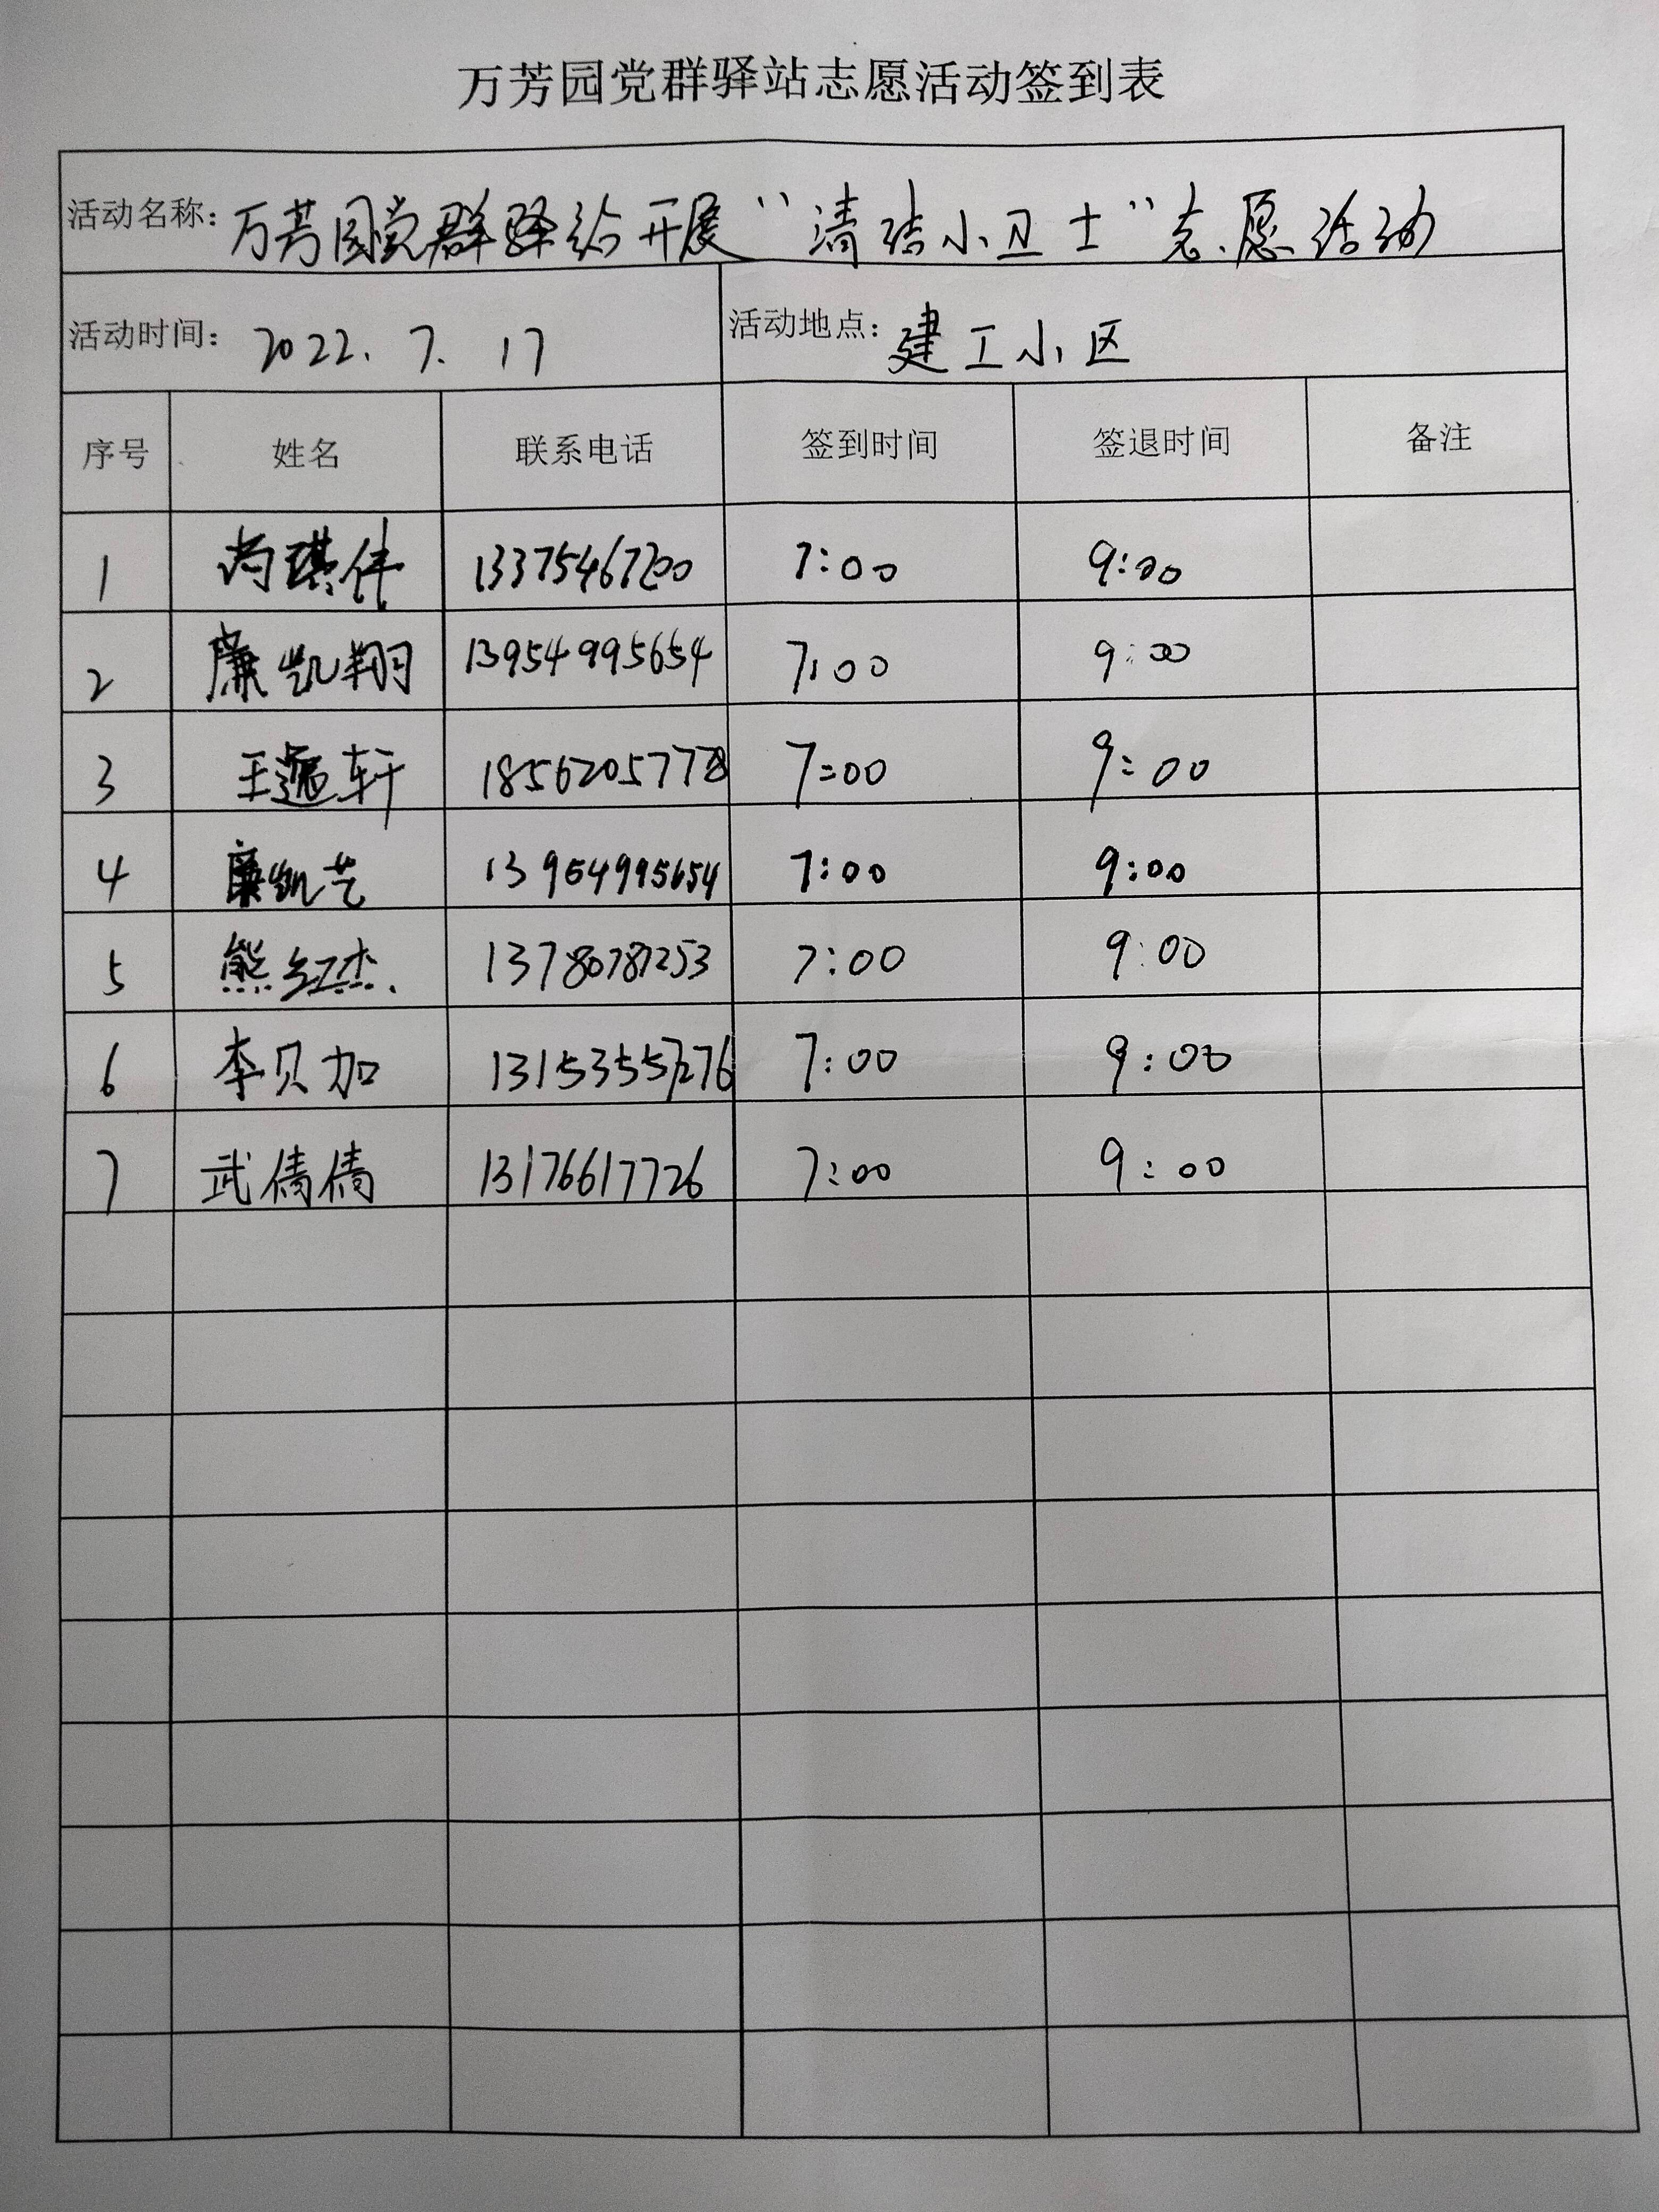 万芳园党群驿站志愿活动签到表
活动名称：万芳园党群驿站开展“清洁小卫士”志愿活动
活动时间：2022.7.17 活动地点：建工小区
序号 姓名 联系电话 签到时间 签退时间 备注
1 7:00 9:00
2 廉凯翔 13954995654 7:00 9:00
3 王逸轩 7:00 9:00
4 廉凯艺 13954995654 7:00 9:00
5 熊红杰 13780787253 7:00 9:00
6 李贝加 13153557276 7:00 9:00
7 武倩倩 13176617726 7:00 9:00